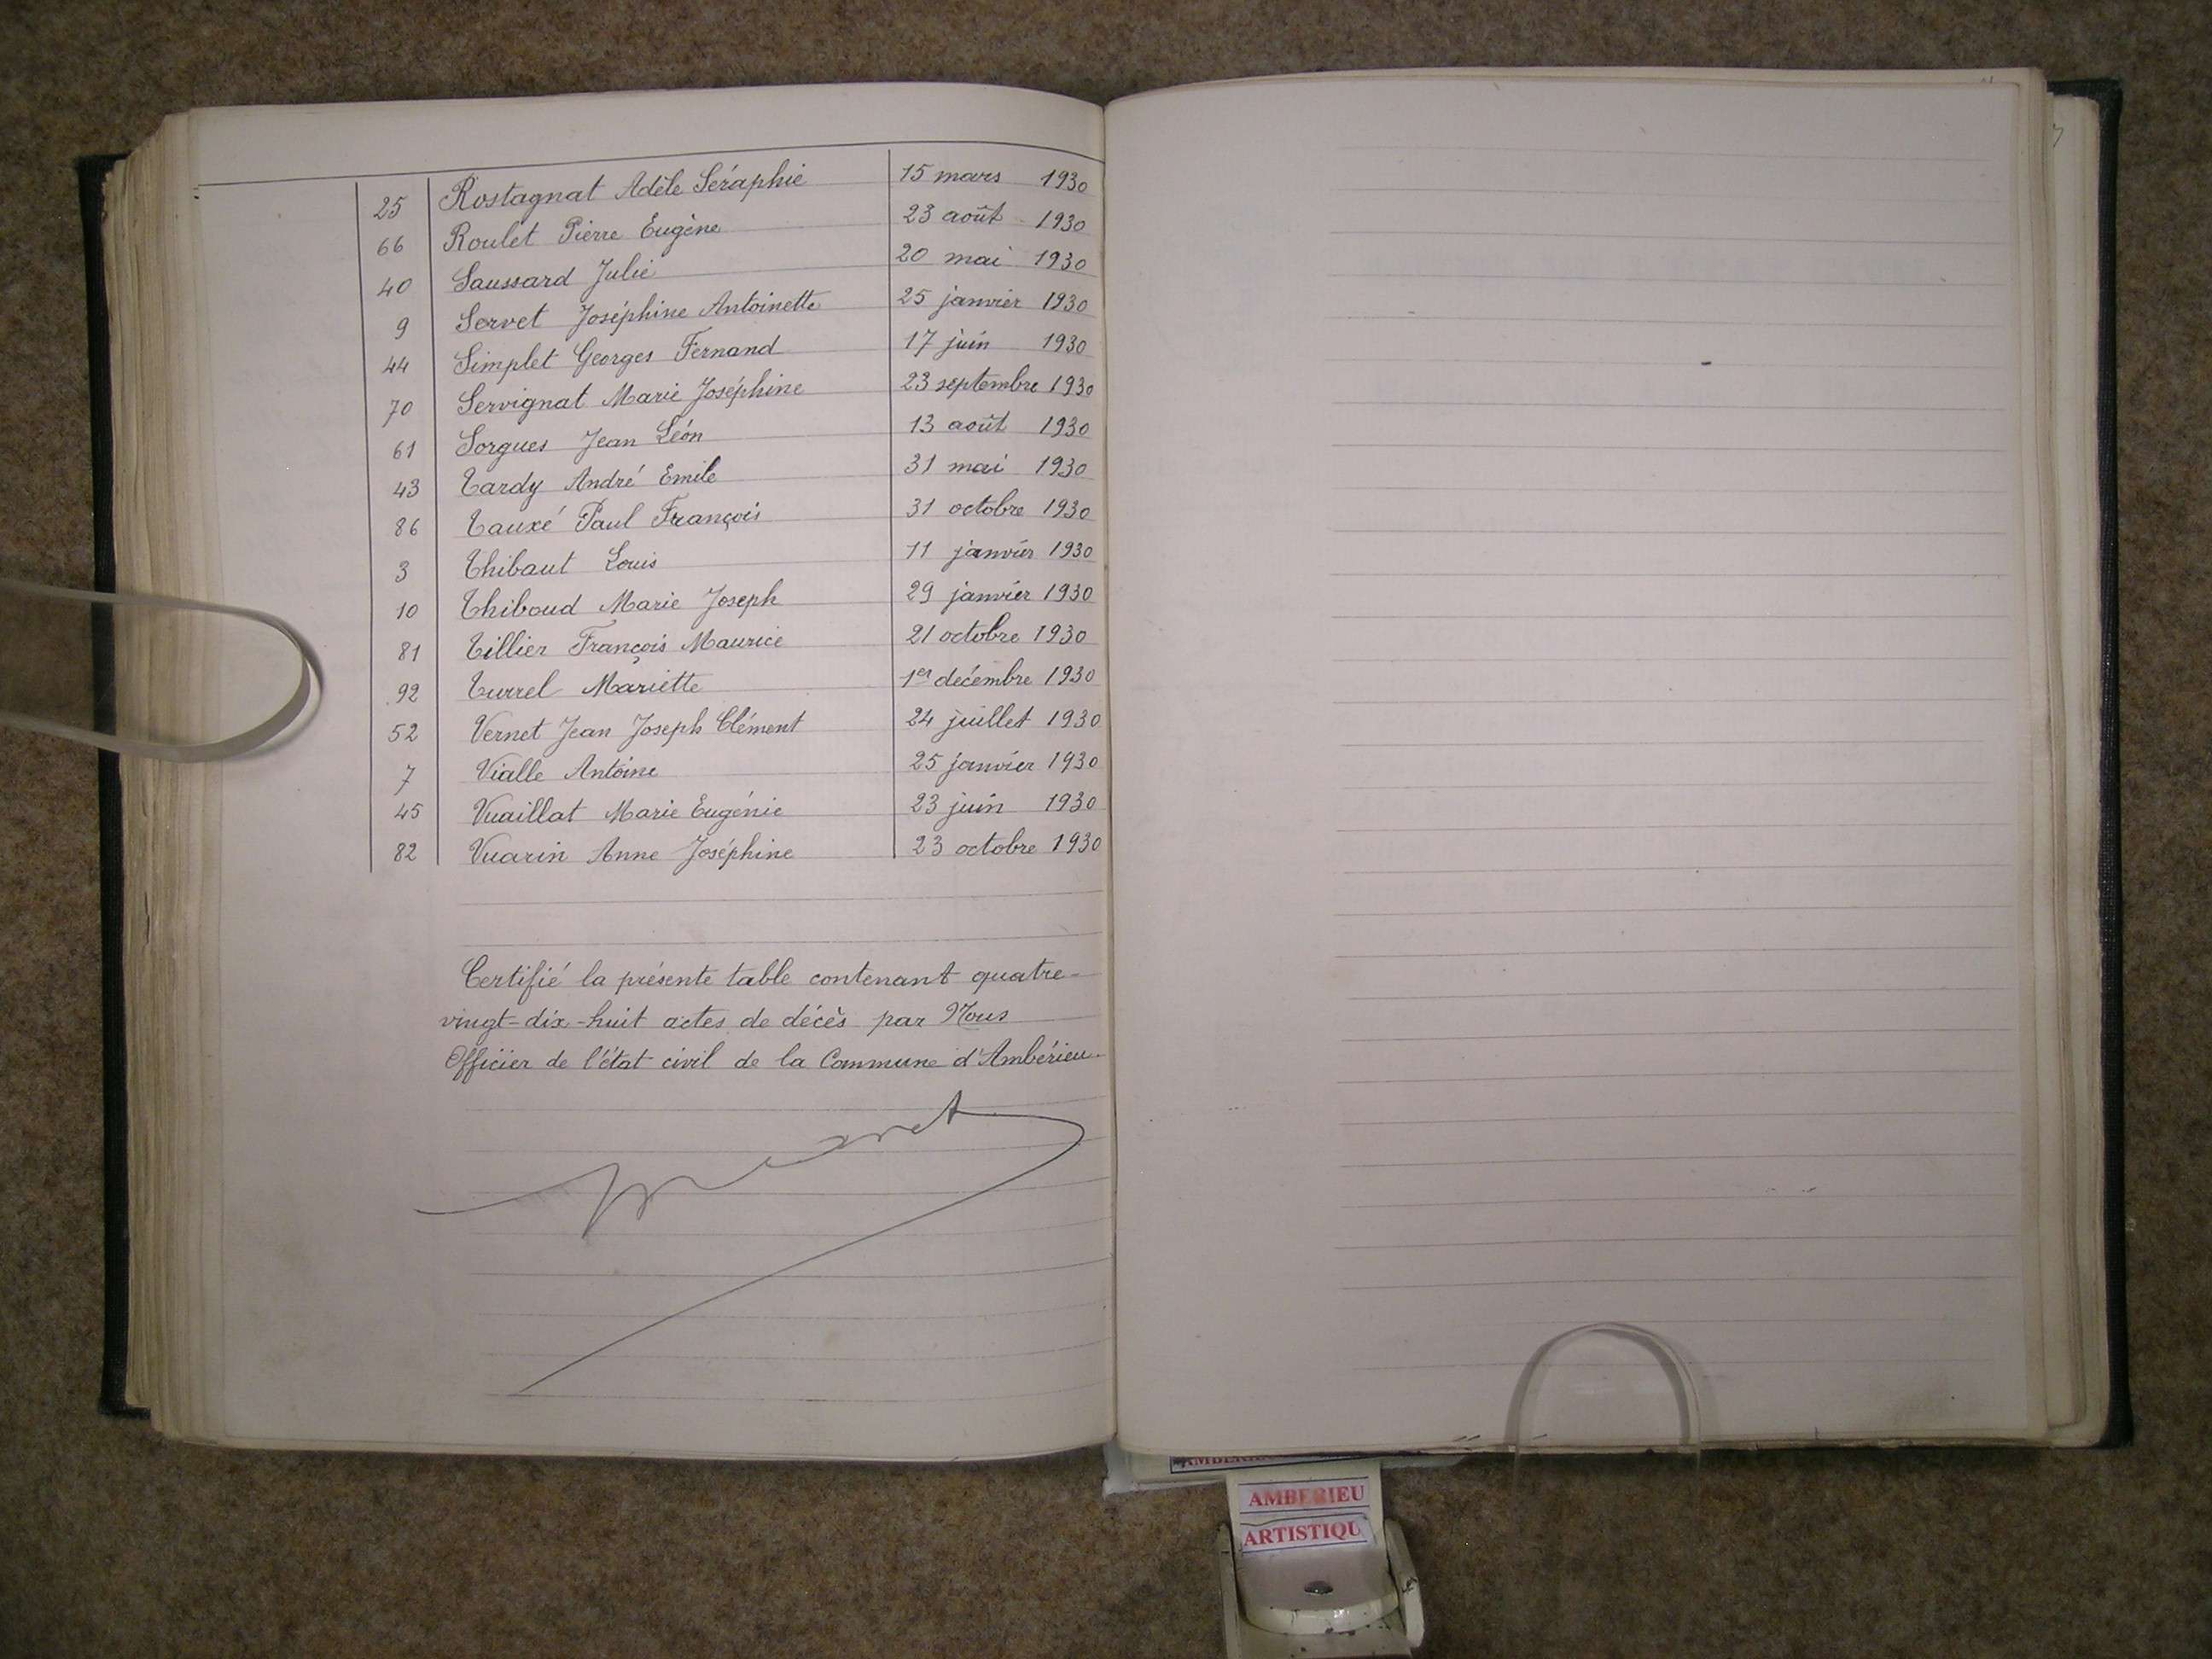 25 Rostagnat Adèle Séraphie 15 mars 1930
66 Roulet Pierre Eugène 23 août 1930
40 Saussard Julie 20 mai 1930
9 Servet Joséphine Antoinette 25 janvier 1930
44 Simplet Georges Fernand 17 juin 1930
70 Servignat Marie Joséphine 23 septembre 1930
61 Sorgues Jean Léon 13 août 1930
43 Tardy André Emile 31 mai 1930
86 Tauxé Paul François 31 octobre 1930
3 Thibaut Louis 11 janvier 1930
10 Thiboud Marie Joseph 29 janvier 1930
81 Tillier François Maurice 21 octobre 1930
92 Turrel Mariette 1er décembre 1930
52 Vernet Jean Joseph Clément 24 juillet 1930
7 Vialle Antoine 25 janvier 1930
45 Vuaillat Marie Eugénie 23 juin 1930
82 Vuarin Anne Joséphine 23 octobre 1930
Certifié la présente table contenant quatre-
vingt-dix-huit actes de décès par Nous
Officier de l'état civil de la Commune d'Ambérieu
AMBERIEU
ARTISTIQU